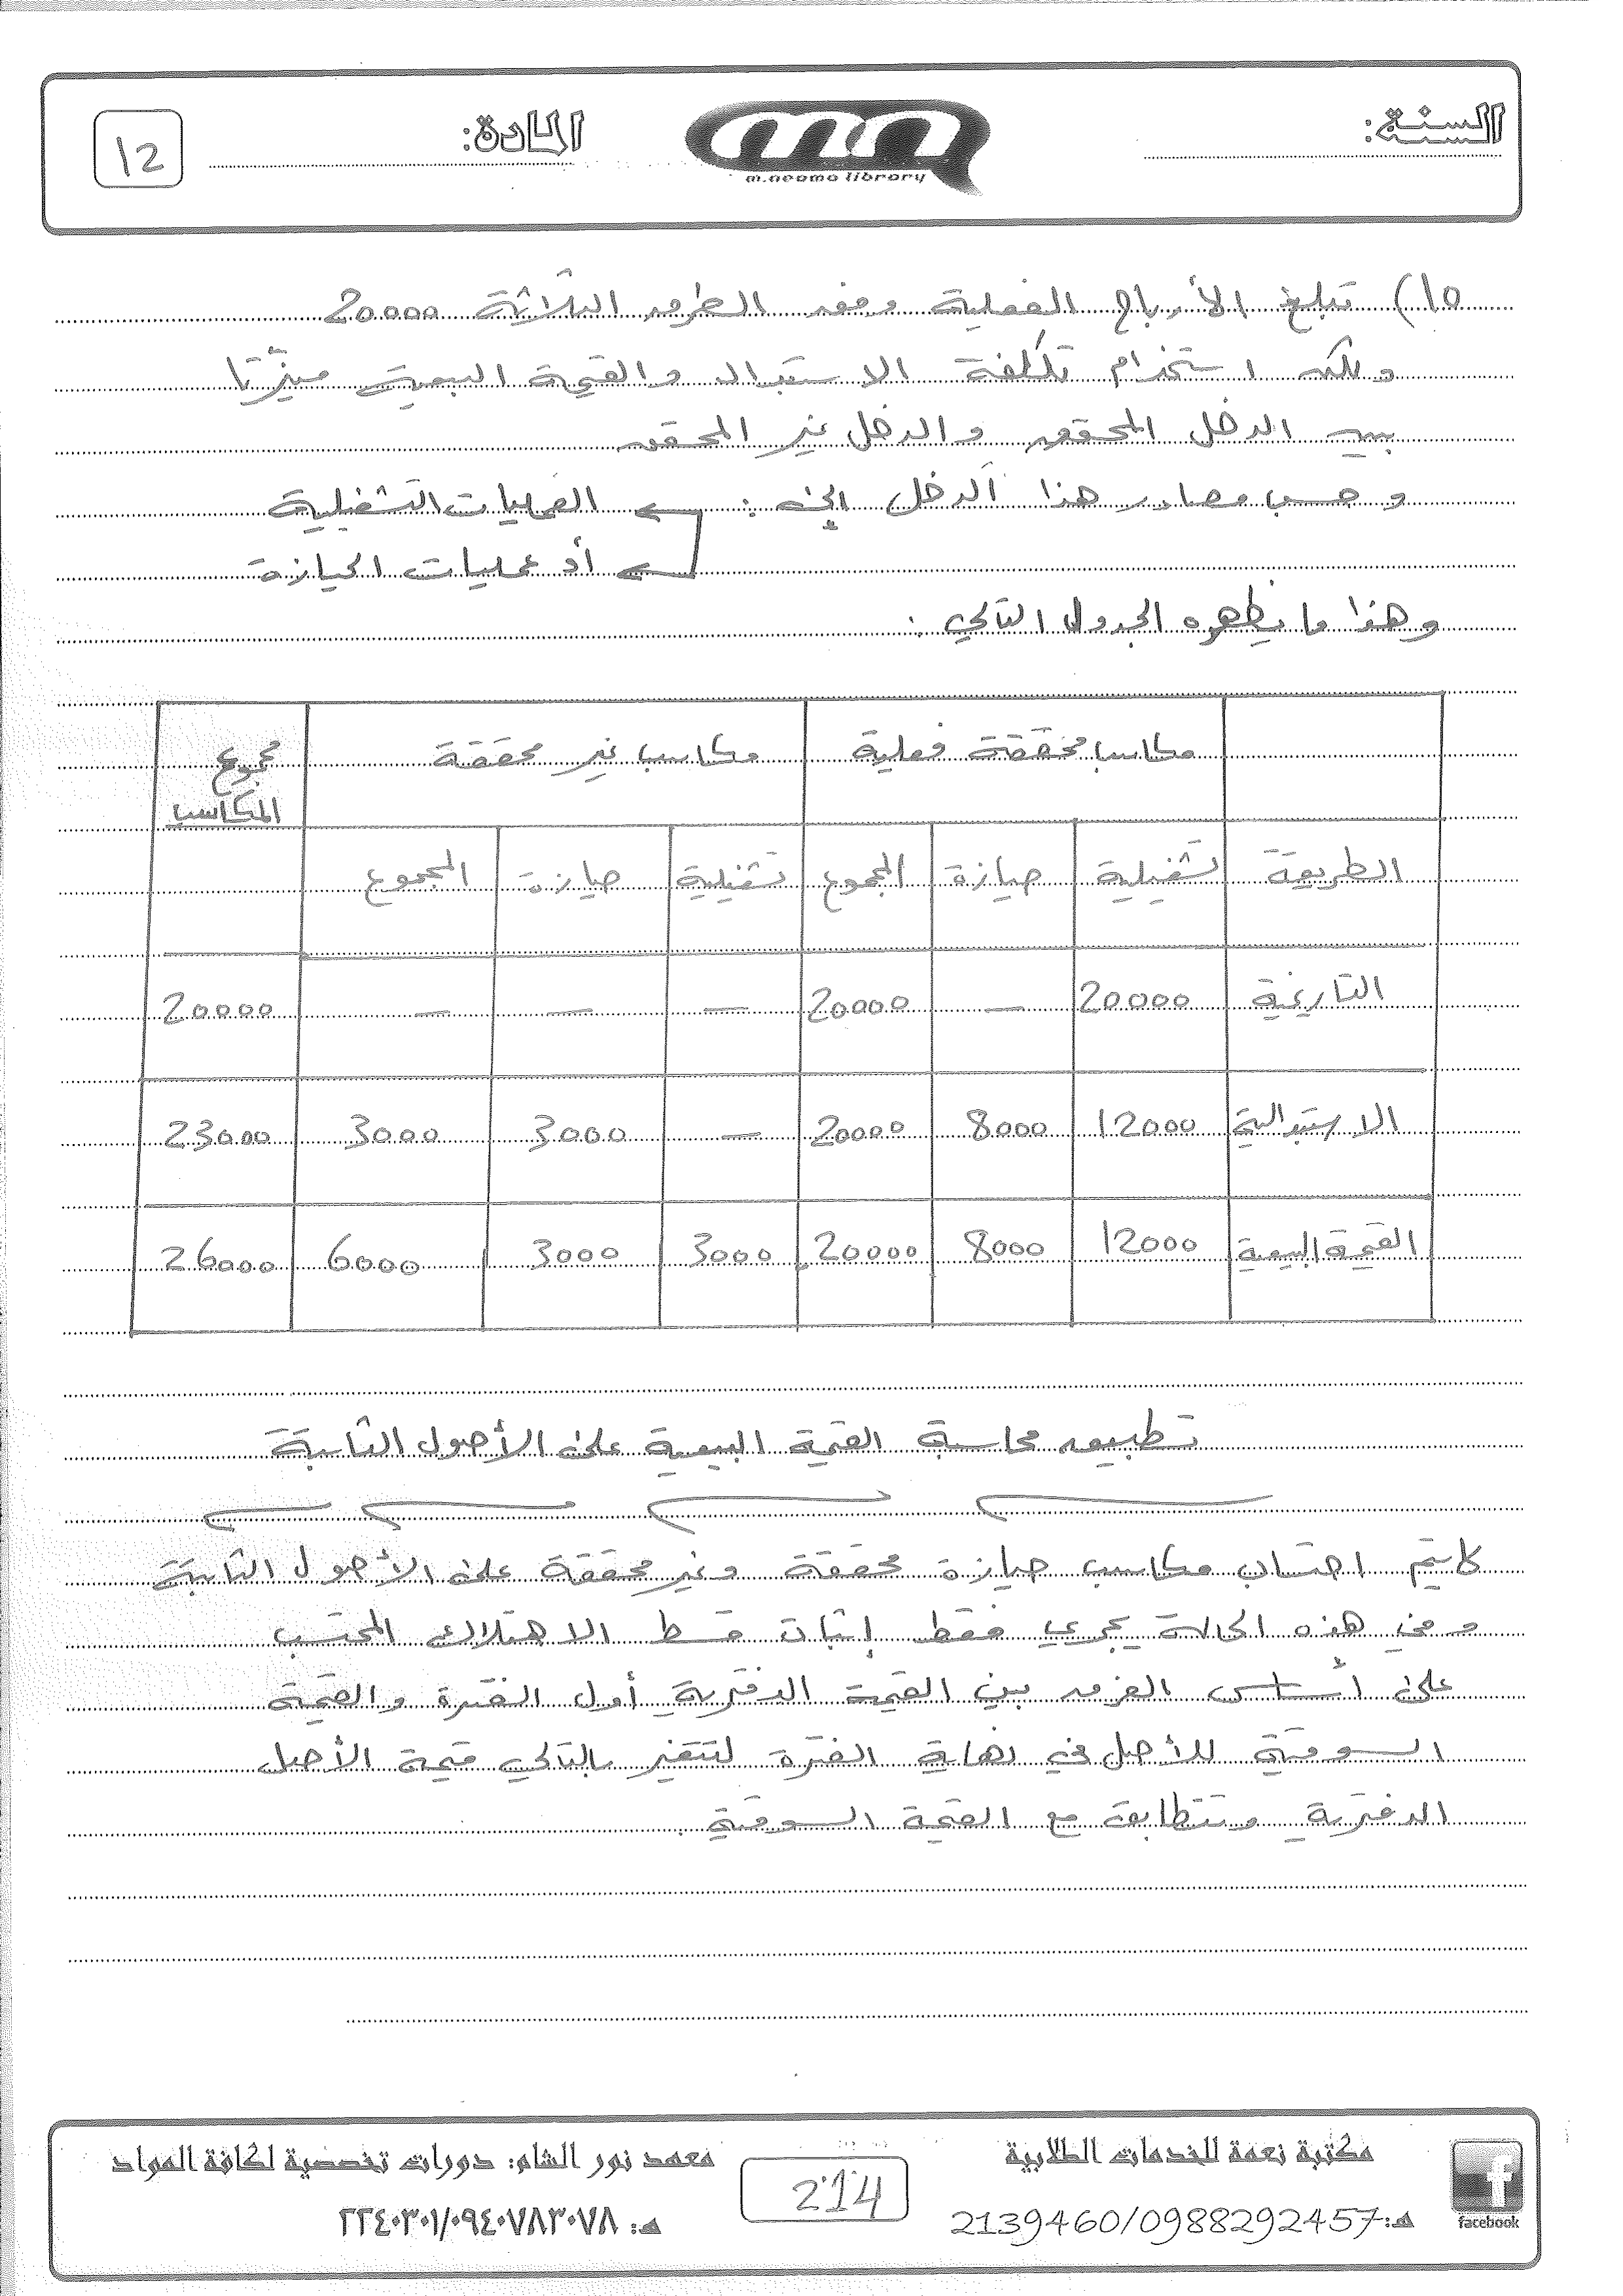 السنة:
m.neama library
المادة:
12
10) تبلغ الأرباح الفعلية وفق الطرق الثلاثة 20000
ولكن استخدام تكلفة الاستبدال والقيمة البيعية ميزتا
بين الدخل المحقق والدخل غير المحقق
وحسب مصادر هذا الدخل إلى: العمليات التشغيلية
أو عمليات الحيازة
وهذا ما يظهره الجدول التالي:
مكاسب محققة فعلية مكاسب غير محققة مجموع المكاسب
الطريقة تشغيلية حيازة المجموع تشغيلية حيازة المجموع
التاريخية 20000 — 20000 — — — 20000
الاستبدالية 12000 8000 20000 — 3000 3000 23000
القيمة البيعية 12000 8000 20000 3000 3000 6000 26000
تطبيق محاسبة القيمة البيعية على الأصول الثابتة
لا يتم احتساب مكاسب حيازة محققة وغير محققة على الأصول الثابتة
وفي هذه الحالة يجري فقط إثبات قسط الاهتلاك المحتسب
على أساس الفرق بين القيمة الدفترية أول الفترة والقيمة
السوقية للأصل في نهاية الفترة لتتغير بالتالي قيمة الأصل
الدفترية وتتطابق مع القيمة السوقية.
مكتبة نعمة للخدمات الطلابية
هـ: 2139460/0988292457
facebook
214
معهد نور الشام: دورات تخصصية لكافة المواد
هـ: ٢٢٤٠٣٠١/٠٩٤٠٧٨٣٠٧٨